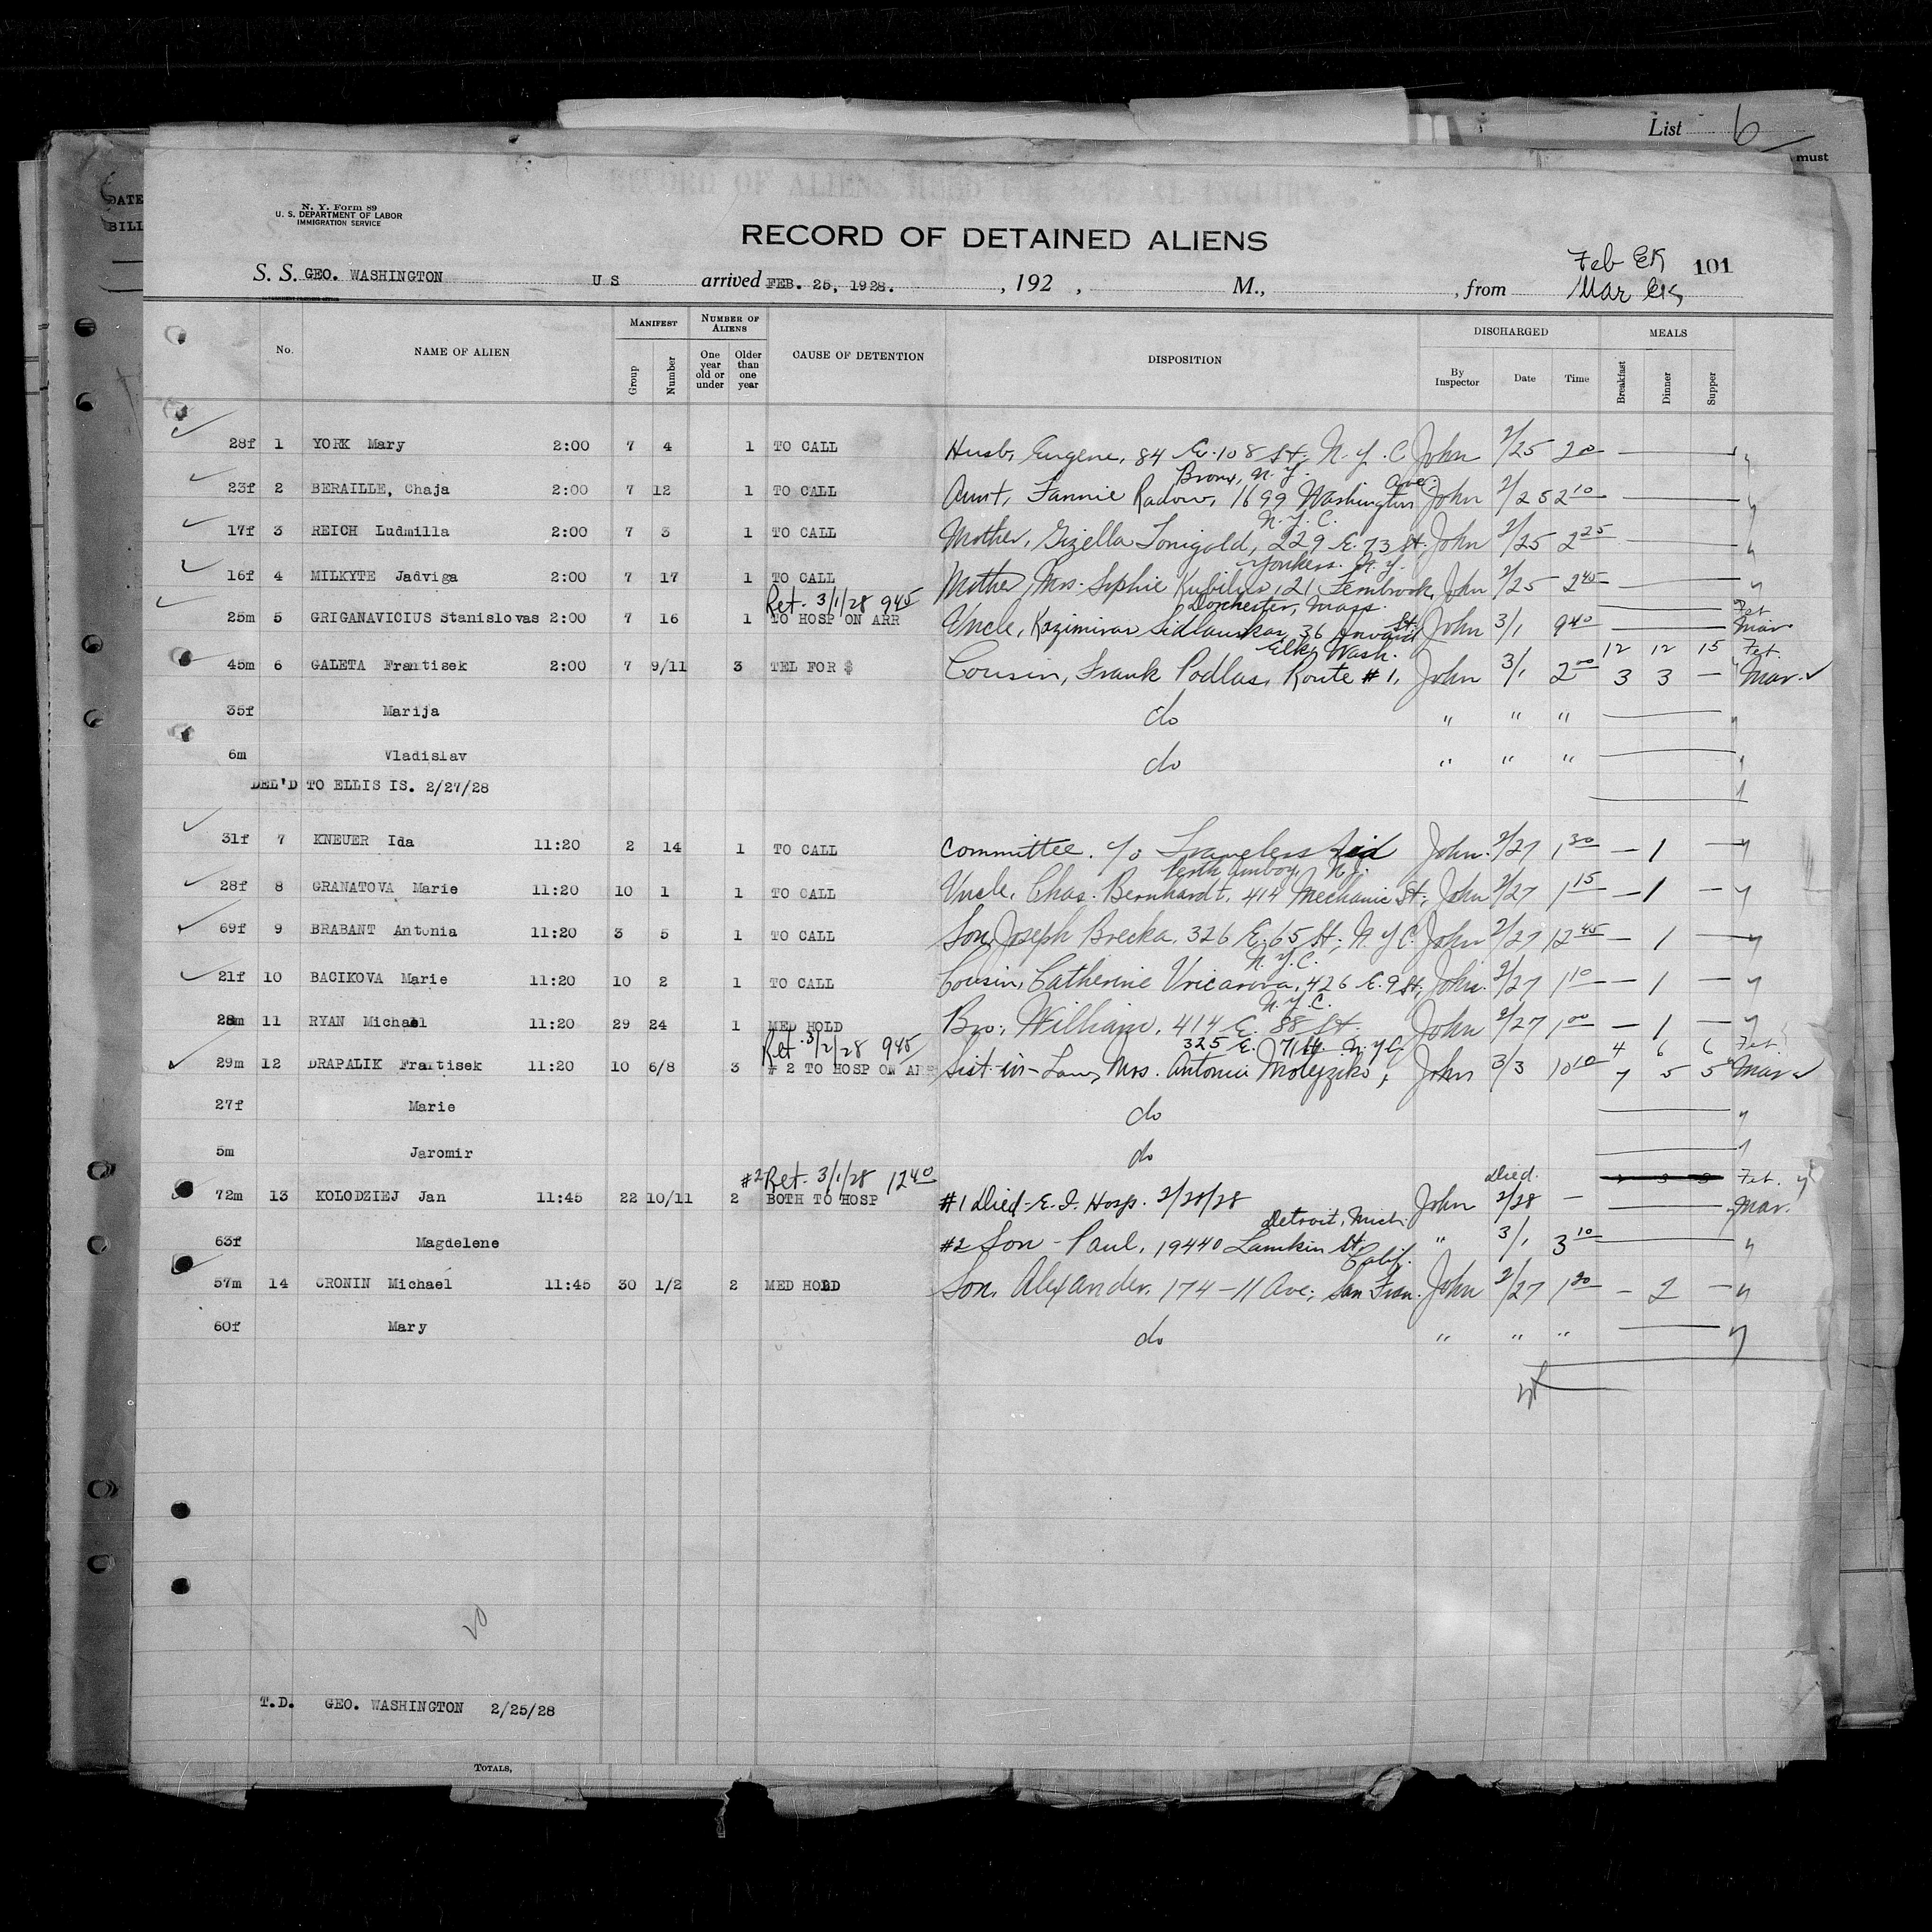 List 6
must
DATE
BILL
N. Y. Form 89
U. S. DEPARTMENT OF LABOR
IMMIGRATION SERVICE
RECORD OF DETAINED ALIENS
Feb EK 101
S. S. GEO. WASHINGTON U S arrived FEB. 25, 1928. , 192 , M., , from Mar EK
No. NAME OF ALIEN MANIFEST NUMBER OF ALIENS CAUSE OF DETENTION DISPOSITION DISCHARGED MEALS
Group Number One year old or under Older than one year By Inspector Date Time Breakfast Dinner Supper
28f 1 YORK Mary 2:00 7 4 1 TO CALL Husb, Eugene, 84 E. 108 St, N. Y. C John 2/25 2 00
Bronx, N. Y. Ave.
23f 2 BERAILLE, Chaja 2:00 7 12 1 TO CALL Aunt, Fannie Radow, 1699 Washington John 2/25 2 10
N. Y. C.
17f 3 REICH Ludmilla 2:00 7 3 1 TO CALL Mother, Gizella Tonigold, 229 E. 73 St. John 2/25 2 25
Yonkers. N. Y.
16f 4 MILKYTE Jadviga 2:00 7 17 1 TO CALL Mother, Mrs. Sophie Kubilus, 21 Fernbrook, John 2/25 2 45
Ret. 3/1/28 945 Dorchester, Mass. St. Feb
25m 5 GRIGANAVICIUS Stanislovas 2:00 7 16 1 TO HOSP ON ARR Uncle, Kazimiras Sidlauskas, 36 John 3/1 9 40 Mar
Elk, Wash. 12 12 15 Feb.
45m 6 GALETA Frantisek 2:00 7 9/11 3 TEL FOR $ Cousin, Frank Podlas, Route #1, John 3/1 2 00 3 3 — Mar. ✓
35f Marija do " " "
6m Vladislav do " " "
DEL'D TO ELLIS IS. 2/27/28
31f 7 KNEUER Ida 11:20 2 14 1 TO CALL Committee. c/o Travelers Aid John 2/27 1 30 — 1 —
Perth Amboy, N. J.
28f 8 GRANATOVA Marie 11:20 10 1 1 TO CALL Uncle, Chas. Bernhardt, 414 Mechanic St; John 2/27 1 15 — 1 —
69f 9 BRABANT Antonia 11:20 3 5 1 TO CALL Son, Joseph Brecka. 326 E. 65 St; N. Y C. John 2/27 12 45 — 1 —
N. Y. C.
21f 10 BACIKOVA Marie 11:20 10 2 1 TO CALL Cousin, Catherine Vricarova, 426 E. 9 St, John. 2/27 1 10 — 1 —
N. Y. C.
28m 11 RYAN Michael 11:20 29 24 1 MED HOLD Bro; William, 414 E. 88 St. John 2/27 1 00 — 1 —
Ret. 3/2/28 945 325 E. 71 St. N. Y C. 4 6 6 Feb.
29m 12 DRAPALIK Frantisek 11:20 10 6/8 3 # 2 TO HOSP ON ARR Sist-in-Law, Mrs. Antonie John 3/3 10 10 7 5 5 Mar ✓
27f Marie do
5m Jaromir do
#2 Ret. 3/1/28 12 40 Died. Feb.
72m 13 KOLODZIEJ Jan 11:45 22 10/11 2 BOTH TO HOSP #1 Died - E. I. Hosp. 2/28/28 John 2/28 — Mar.
Detroit, Mich.
63f Magdelene #2 Son - Paul, 19440 Lamkin St. " 3/1 3 10
Calif.
57m 14 CRONIN Michael 11:45 30 1/2 2 MED HOLD Son, Alexander, 174 - 11 Ave; San Fran. John 2/27 1 20 — 2 —
60f Mary do " " "
20
T.D. GEO. WASHINGTON 2/25/28
TOTALS,